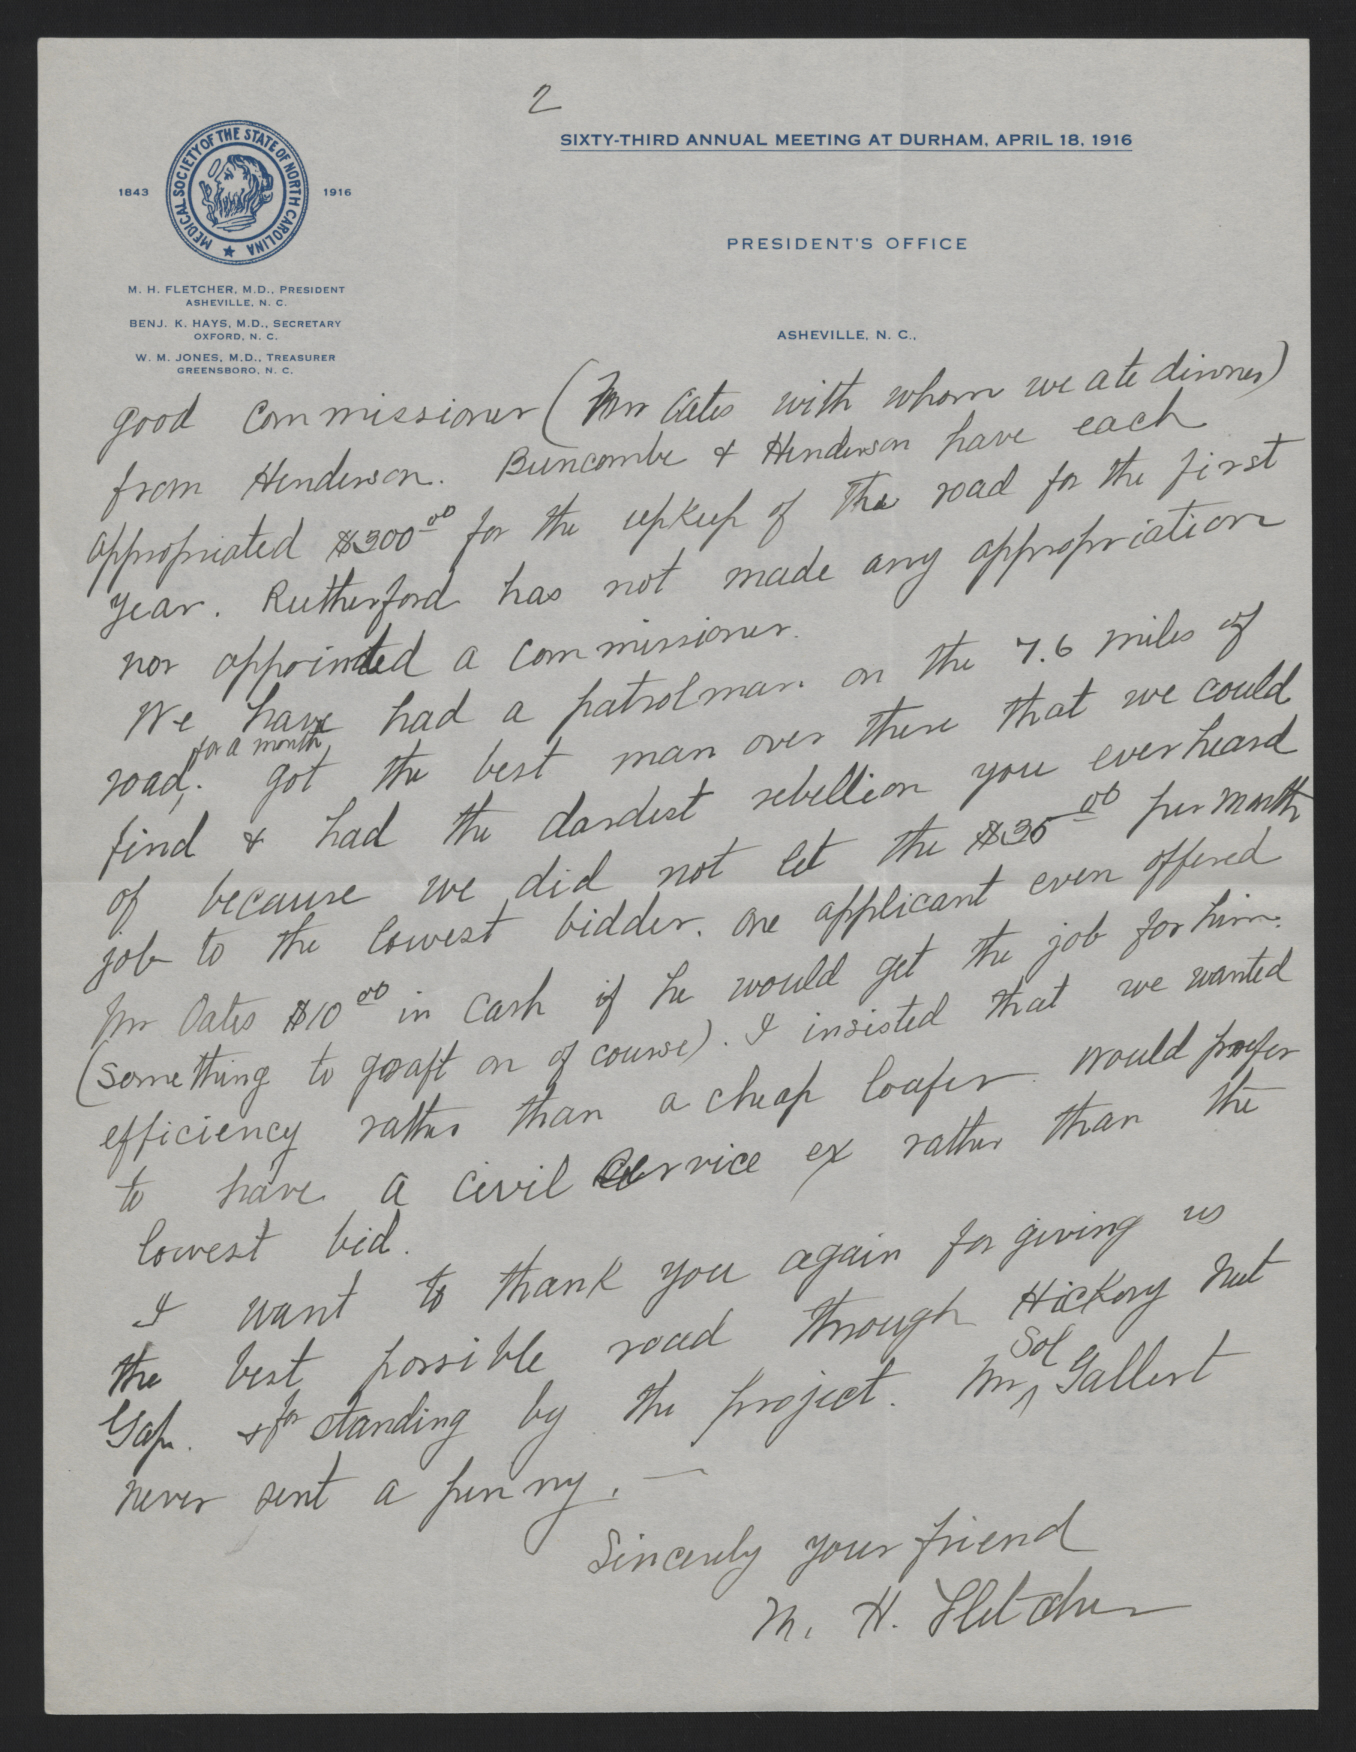 2
SIXTY-THIRD ANNUAL MEETING AT DURHAM, APRIL 18, 1916
MEDICAL SOCIETY OF THE STATE OF NORTH CAROLINA
1843 1916
PRESIDENT'S OFFICE
M. H. FLETCHER, M.D., PRESIDENT
ASHEVILLE, N. C.
BENJ. K. HAYS, M.D., SECRETARY
OXFORD, N. C.
W. M. JONES, M.D., TREASURER
GREENSBORO, N. C.
ASHEVILLE, N. C.,
good commissioner (Mr Oates with whom we ate dinner)
from Henderson. Buncombe & Henderson have each
appropriated $300 00 for the upkeep of the road for the first
year. Rutherford has not made any appropriation
nor appointed a commissioner.
We have had a patrolman on the 7.6 miles of
road, for a month. got the best man over there that we could
find & had the darndest rebellion you ever heard
of because we did not let the $35 00 per month
job to the lowest bidder. one applicant even offered
Mr Oates $10 00 in cash if he would get the job for him.
(Something to graft on of course). I insisted that we wanted
efficiency rather than a cheap loafer. would prefer
to have a civil service ex rather than the
lowest bid.
I want to thank you again for giving us
the best possible road through Hickory Nut
Gap. & for standing by the project. Mr Sol Gallert
never sent a penny. —
Sincerely your friend
M. H. Fletcher